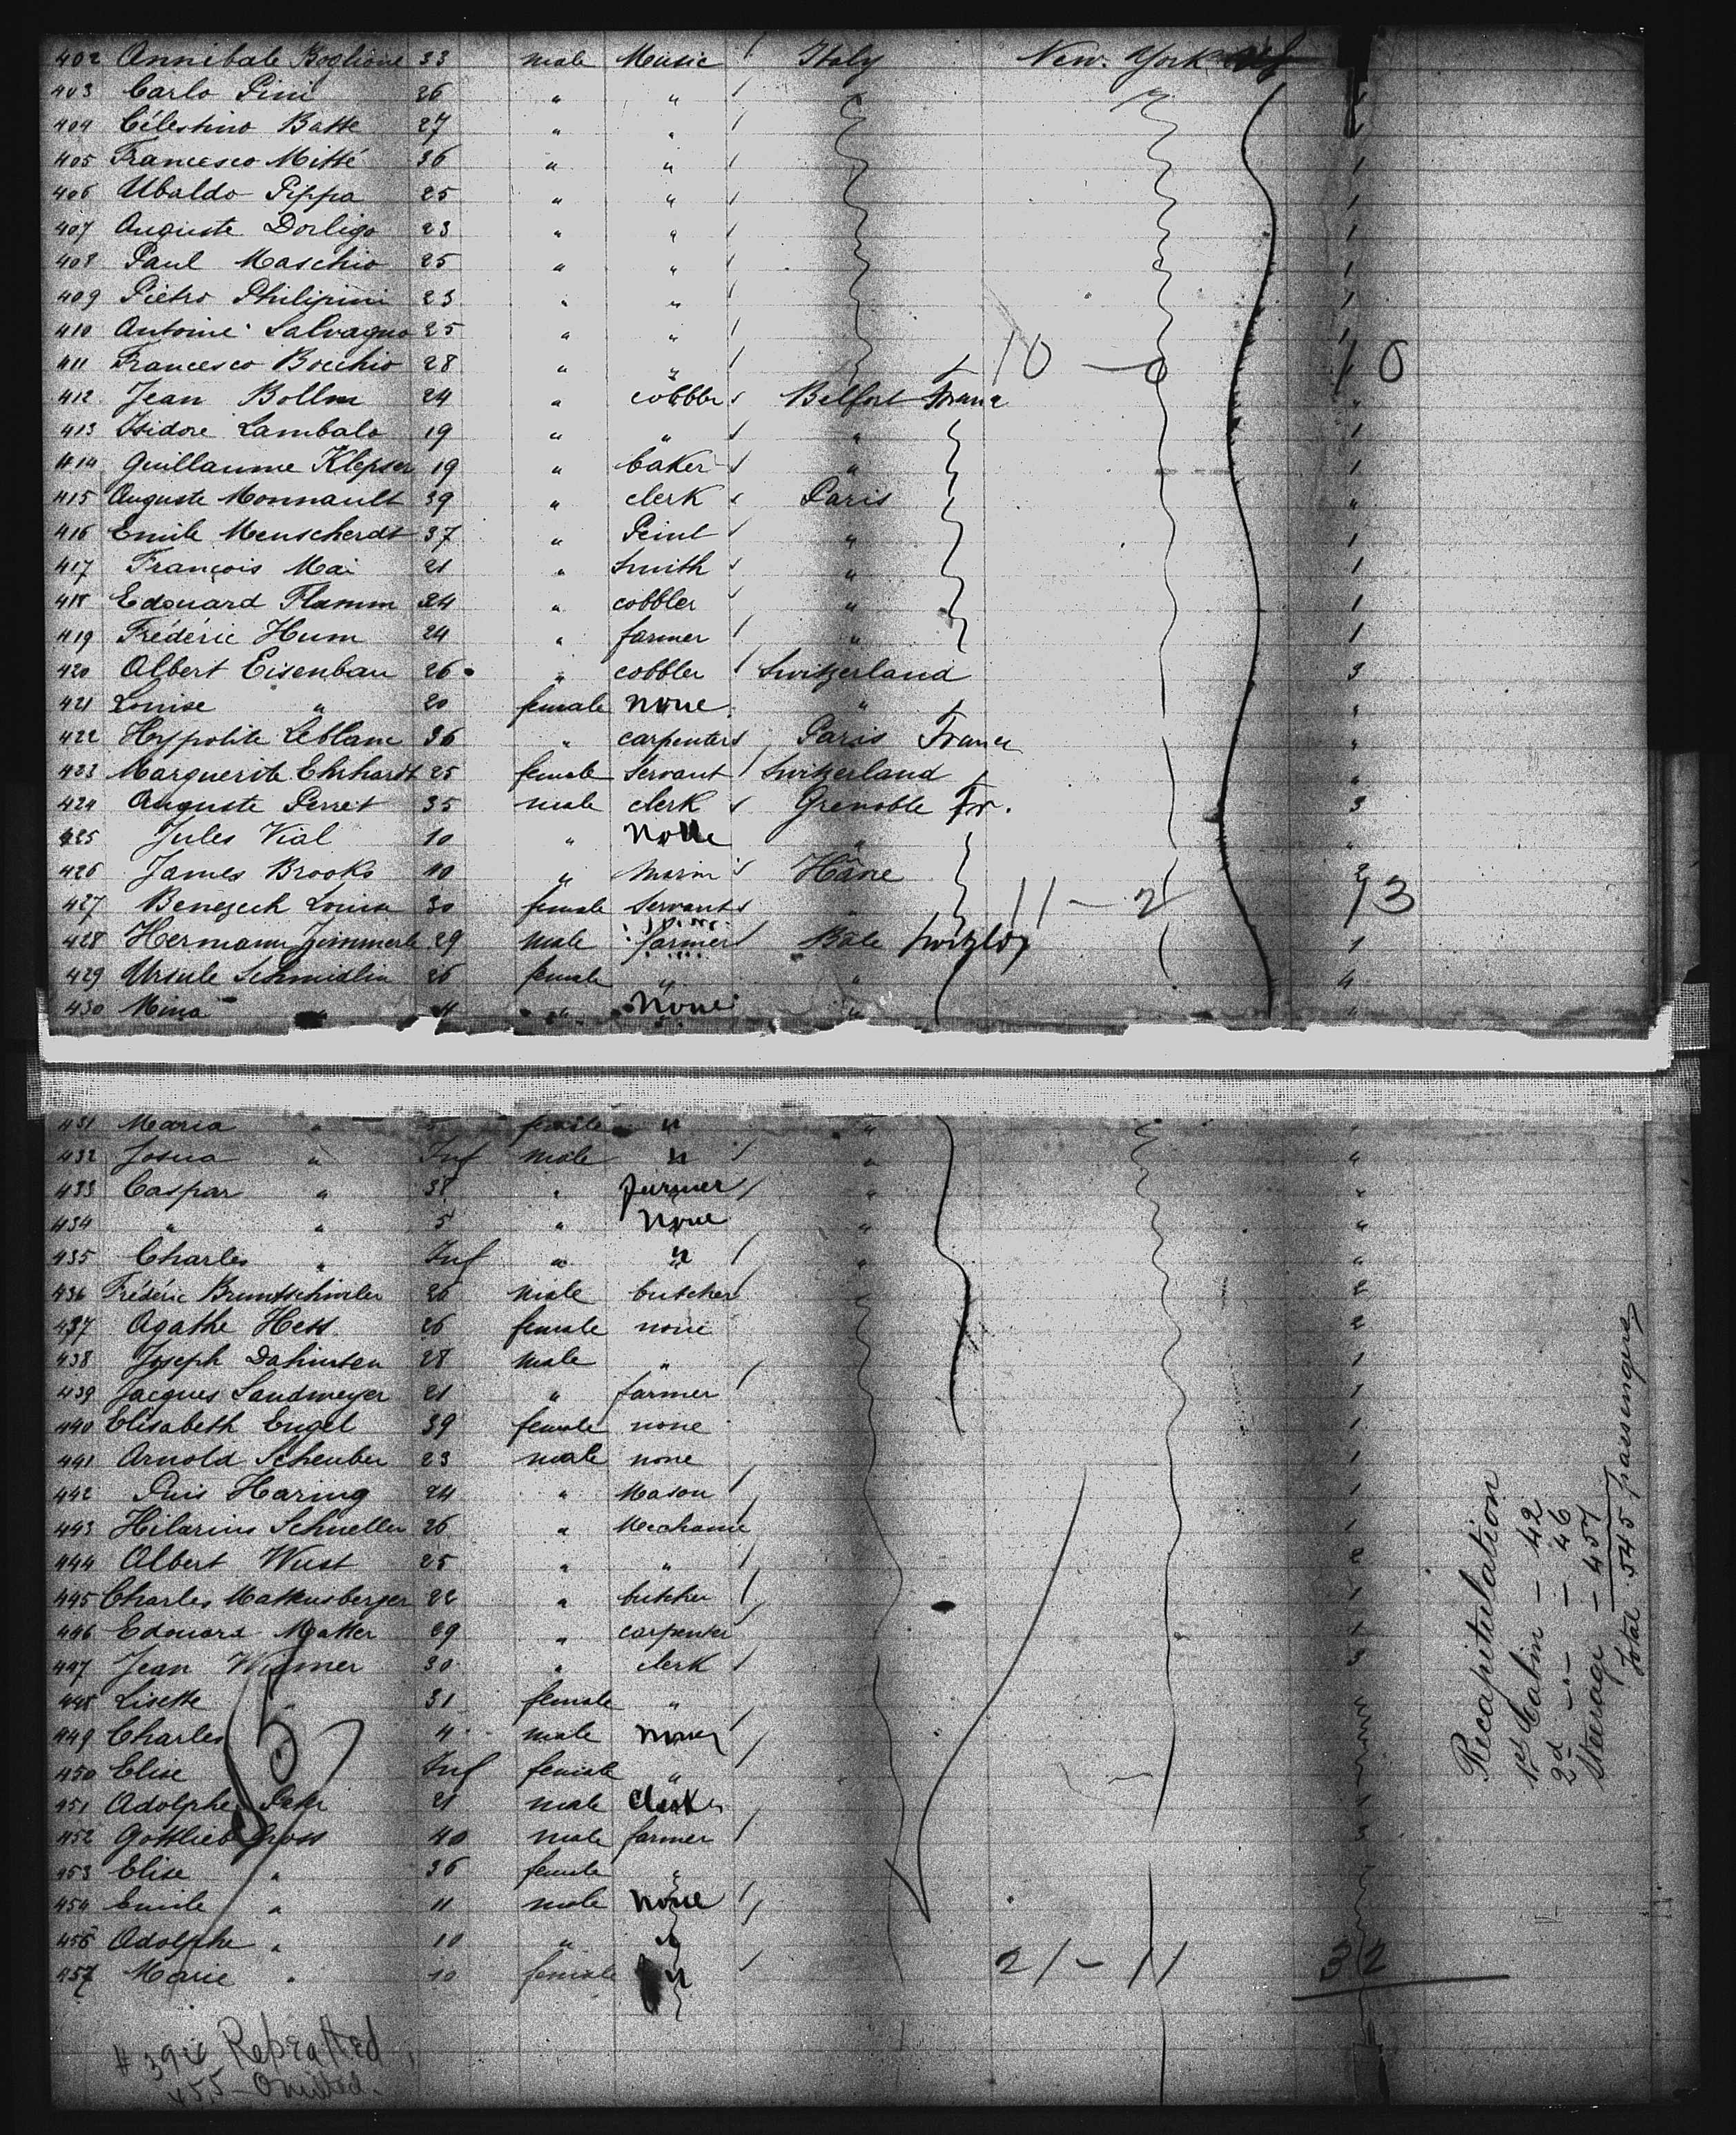 402 Annibale Boglione 33 male Music / Italy New-York
403 Carlo Pini 26 " " /
404 Célestino Batte 27 " " /
405 Francesco Mitté 36 " " /
406 Ubaldo Pippa 25 " " /
407 Auguste Dorligo 23 " " /
408 Paul Maschio 25 " " /
409 Pietro Philipini 23 " " /
410 Antoine Salvagno 25 " " /
411 Francesco Bocchio 28 " " / 10 — 0 10
412 Jean Bollm 24 " cobbler s Belfort France "
413 Isidore Lambalo 19 " " s " 1
414 Guillaume Klepser 19 " baker s " 1
415 Auguste Monnault 39 " clerk s Paris "
416 Emile Menscherdt 37 " Peint s " 1
417 François Mai 21 " Smith s " 1
418 Edouard Flamm 24 " cobbler / " 1
419 Frédéric Hum 24 " farmer / " 1
420 Albert Eisenbau 26 " cobbler / Switzerland 3
421 Louise " 20 female none " "
422 Hyppolite Leblanc 36 " carpenter s Paris France "
423 Marguerite Ehrhardt 25 female Servant / Switzerland "
424 Auguste Perret 35 male clerk s Grenoble Fr. 3
425 Jules Vial 10 " None " "
426 James Brooks 40 " marin s Hâvre 2
427 Benezech Louise 30 female Servant s " 11 — 2 13
428 Hermann Zimmerle 29 male farmer / Bâle Switzld 1
429 Ursule Schmidlin 26 female " " 4
430 Mina " 4 " None " "
431 Maria " 5 female " " "
432 Josua " Inf male " / " "
433 Caspar " 38 " farmer / " "
434 " " 5 " None " "
435 Charles " Inf " " / " "
436 Frédéric Bruntschwiler 26 male butcher 2
437 Agathe Hess 26 female none 2
438 Joseph Dahinten 28 male " / 1
439 Jacques Landmeyer 21 " farmer / 1
440 Elisabeth Engel 39 female none 1
441 Arnold Scheuber 23 male none 1
442 Pius Haring 24 " Mason / 1
443 Hilarius Schneller 26 " Mechanic 1
444 Albert Wust 25 " " / 2
445 Charles Matkusberger 22 " butcher / 1
446 Edouard Matter 29 " carpenter 1
447 Jean Widmer 30 " clerk / 3
448 Lisette " 31 female "
449 Charles 4 male None
450 Elise Inf female "
451 Adolphe 21 male Clerk 1
452 Gottlieb Gross 40 male farmer / 3
453 Elise " 36 female "
454 Emile " 11 male None /
456 Adolphe " 10 " "
457 Marie " 10 female " / 21 — 11 32
Repeated
455 — Omitted.
Recapitulation
1st Cabin — 42
2d —"— — 46
Steerage — 457
Total 545 passengers